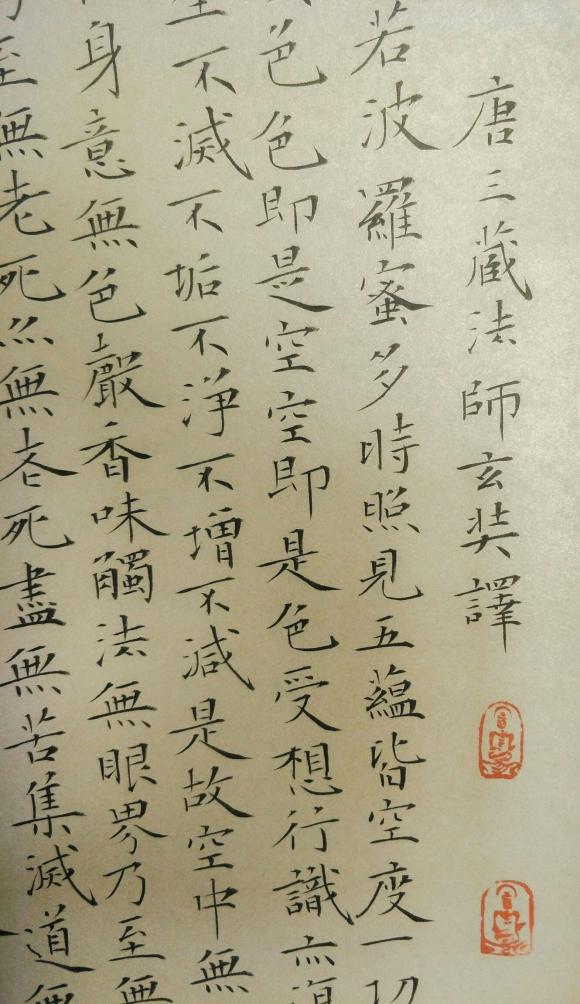 唐三藏法師玄奘譯
若波羅蜜多時照見五蘊皆空度一切
色色即是空空即是色受想行識亦復
不滅不垢不淨不增不減是故空中無
身意無色聲香味觸法無眼界乃至無
至無老死亦無老死盡無苦集滅道無